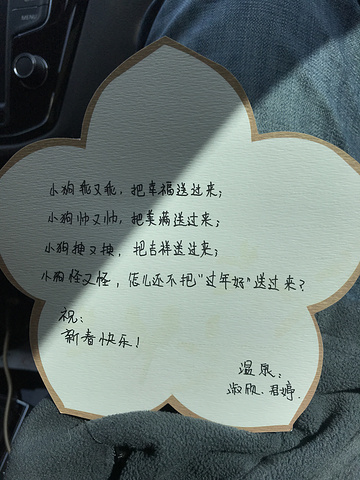 MENU
小狗乖又乖，把幸福送过来；
小狗帅又帅，把美满送过来；
小狗拽又拽，把吉祥送过来；
小狗怪又怪，怎儿还不把“过年好”送过来？
祝：
新春快乐！
温泉：
淑欣．君婷．